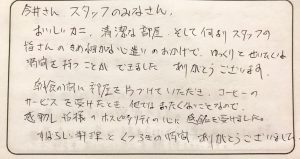 今井さん スタッフのみなさん、
おいしいカニ、清潔な部屋、そして何よりスタッフの
皆さんのきめ細かな心遣いのおかげで、ゆっくりとぜいたくな
時間を持つことができました ありがとうございます。
朝食の間に部屋を片づけていただき、コーヒーの
サービスを受けたとき、他ではあたたくないことなので、
感動し 皆様のホスピタリティの心に感銘を受けました。
すばらしい料理とくつろぎの時間 ありがとうございました。